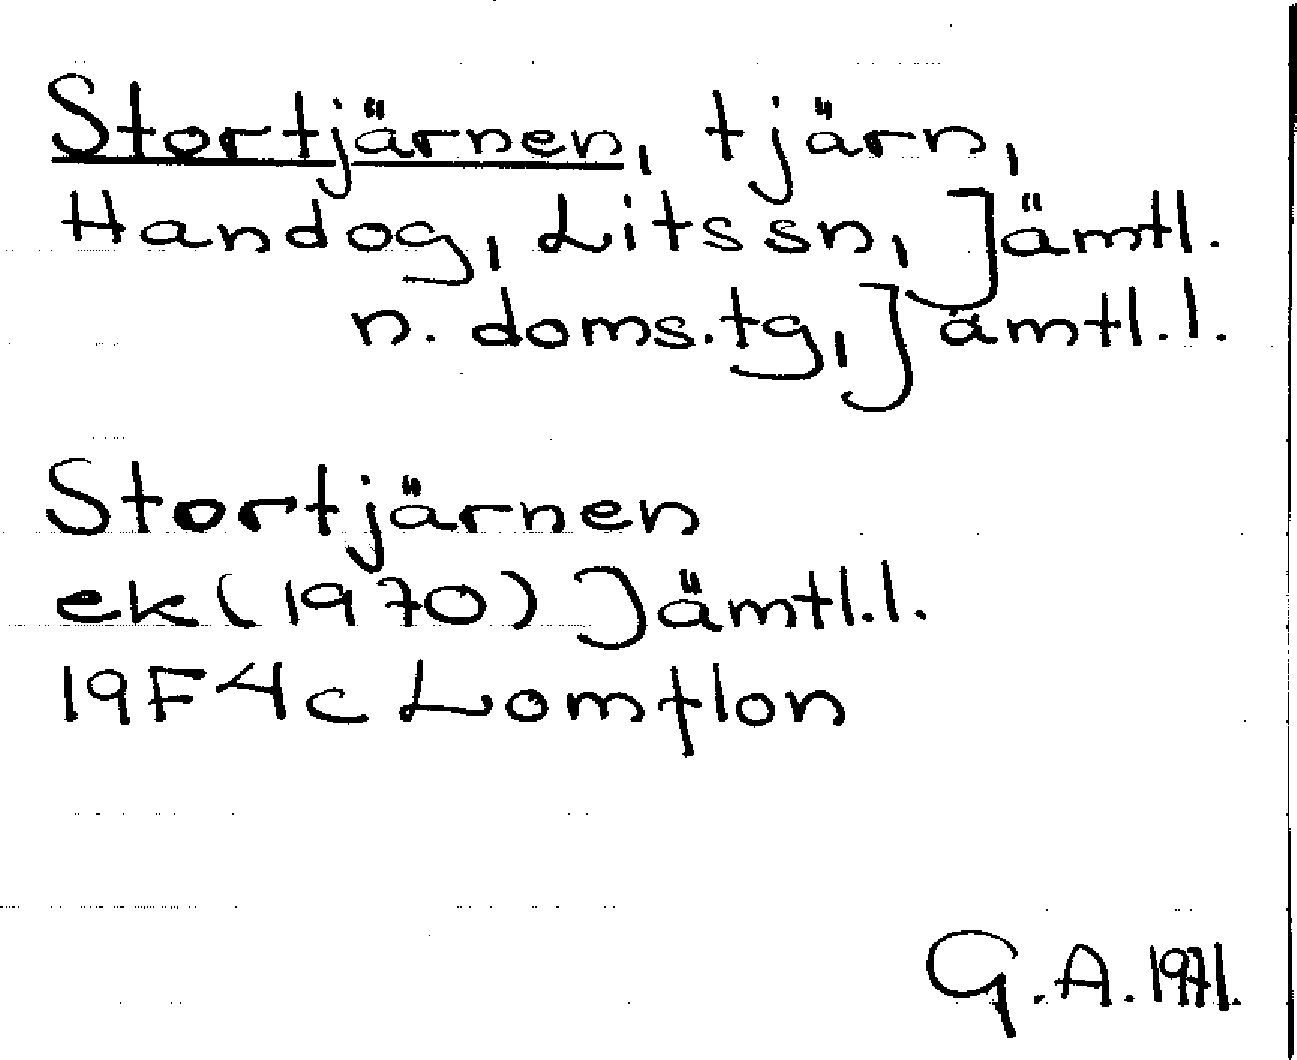 Stortjärnen, tjärn,
Handog, Lits sn, Jämtl.
n. doms.tg, Jämtl.l.
Stortjärnen
ek (1970) Jämtl.l.
19F4c Lomflon
G.A. 1971.